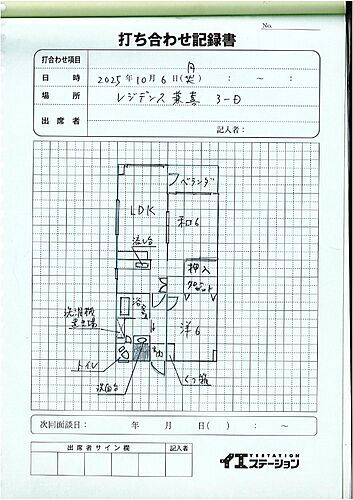 No.
打ち合わせ記録書
打合わせ項目
日時 2025年10月6日(月) : ~ :
場所 レジデンス兼喜 3-D
出席者
記入者:
ベランダ
LDK
和6
流し台
押入
クロゼット
浴室
洗濯機
置き場
洋6
トイレ
洗面台
くつ箱
次回面談日: 年 月 日( ) : ~ :
出席者サイン欄 記入者
YESTATION
イエステーション